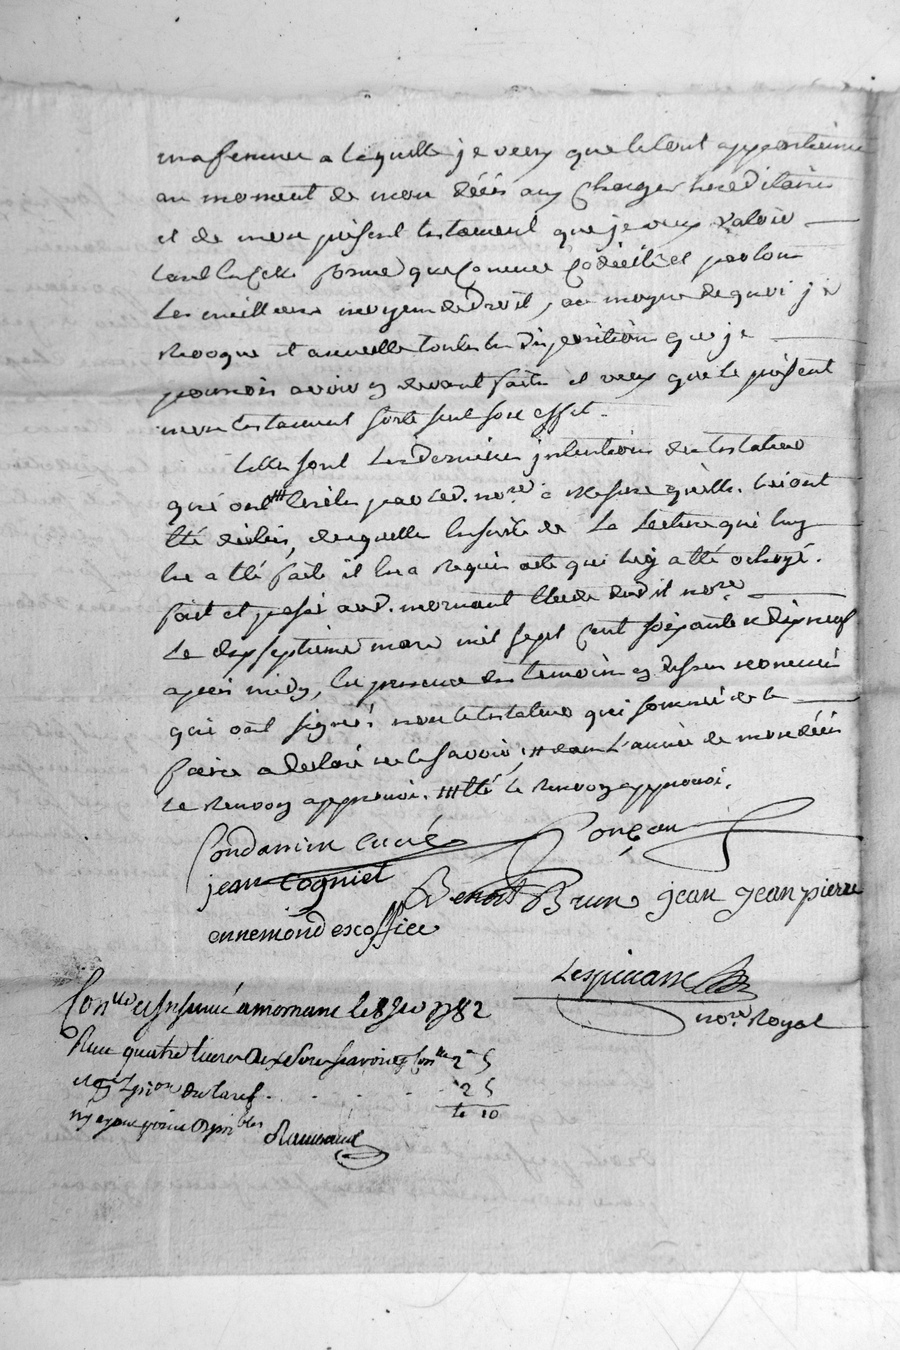 ma femme a laquelle je veux que le tout appartienne
au moment de mon décés aux charges hereditaires
et de mon présent testament que je veux valoir
tant en cette forme que comme codicille et par tous
les meilleurs moyens de droit, au moyen de quoi je
revoque et annulle toutes les dispositions que je
pourrois avoir cy devant faite et veux que le présent
mon testament sorte seul son effet.
telles sont les dernieres jntentions du testateur
qui ont ### ecrites par led. nore. a mesure qu'elles
été dictées, desquelles ensuite de la lecture qui luy
en a été faite il en a requis acte qui luy a été octroyé.
fait et passé aud. mornant etude dudit nore.
le dix septieme mars mil sept cent soixante et dix neuf
apres midy, en presence des temoins cy dessus nommés
qui ont signés non le testateur qui sommé de le
faire a declaré ne le savoir, # dans l'année de mon décés
le renvoy approuvé. ### été le renvoy approuvé.
Condamin curé Goncon
jean Cogniet
Benoit Brun jean jean pierre
ennemond escoffier
Lespinasse
nore. Royal
Conlle et Insinué a mornant le 8 1782
Reçu quatre livres dix sous savoir pr. Conlle 2 5
du tarif . . . . 2 5
4 10